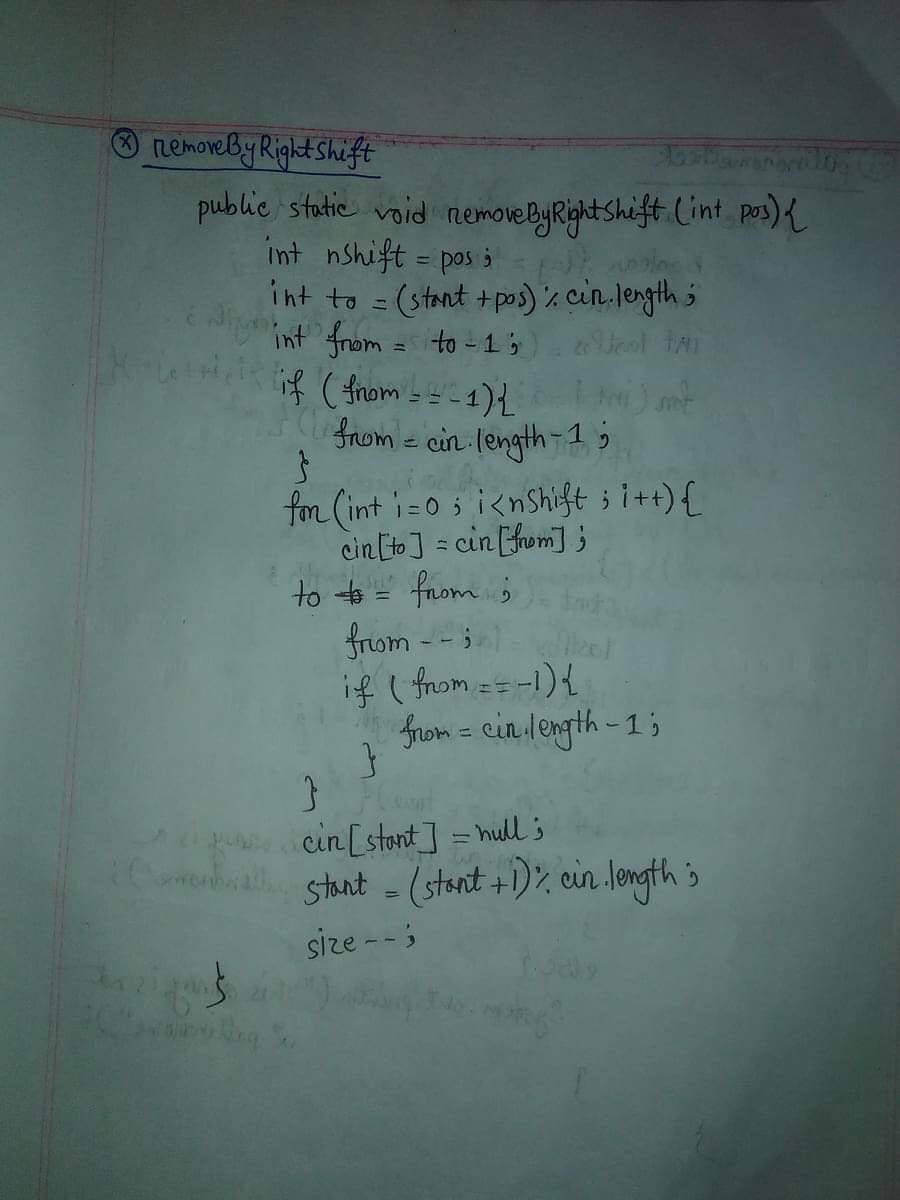 ⓧ removeByRightShift
public static void removeByRightShift (int pos){
int nShift = pos ;
int to = (start + pos) % cir.length ;
int from = to - 1 ;
if ( from == -1){
from = cir.length - 1 ;
}
for (int i=0 ; i<nShift ; i++) {
cir[to] = cir[from] ;
to = from ;
from -- ;
if ( from == -1){
from = cir.length - 1 ;
}
}
cir[start] = null ;
start = (start + 1) % cir.length ;
size -- ;
}